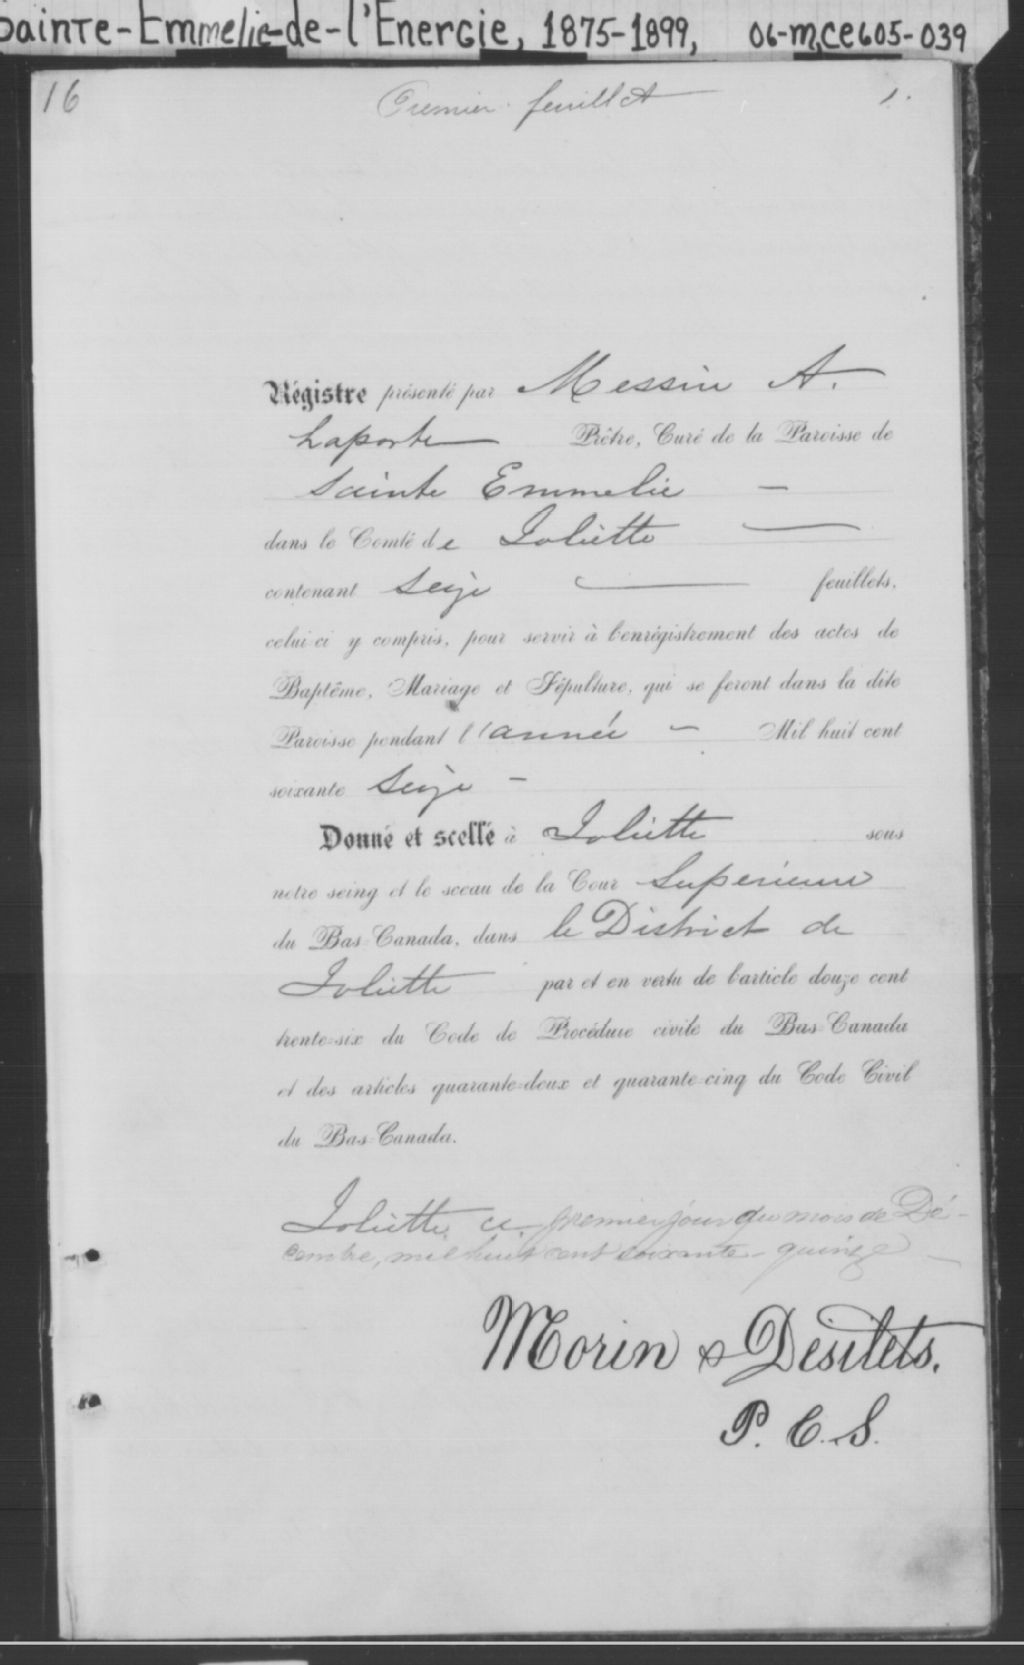 Sainte-Emmelie-de-l'Energie, 1875-1899, 06-M,CE605-039
16 Premier feuillet 1.
Régistre présenté par Messire A.
Laporte Prêtre, Curé de la Paroisse de
Sainte Emmelie —
dans le Comté de Joliette —
contenant Seize — feuillets,
celui-ci y compris, pour servir à l'enrégistrement des actes de
Baptême, Mariage et Sépulture, qui se feront dans la dite
Paroisse pendant l'année — Mil huit cent
soixante Seize —
Donné et scellé à Joliette sous
notre seing et le sceau de la Cour Superieure
du Bas-Canada, dans le District de
Joliette par et en vertu de l'article douze cent
trente-six du Code de Procédure civile du Bas-Canada
et des articles quarante-deux et quarante-cinq du Code Civil
du Bas-Canada.
Joliette, ce premier jour du mois de Dé-
cembre, mil huit cent soixante-quinze —
Morin & Désilets.
P. C. S.